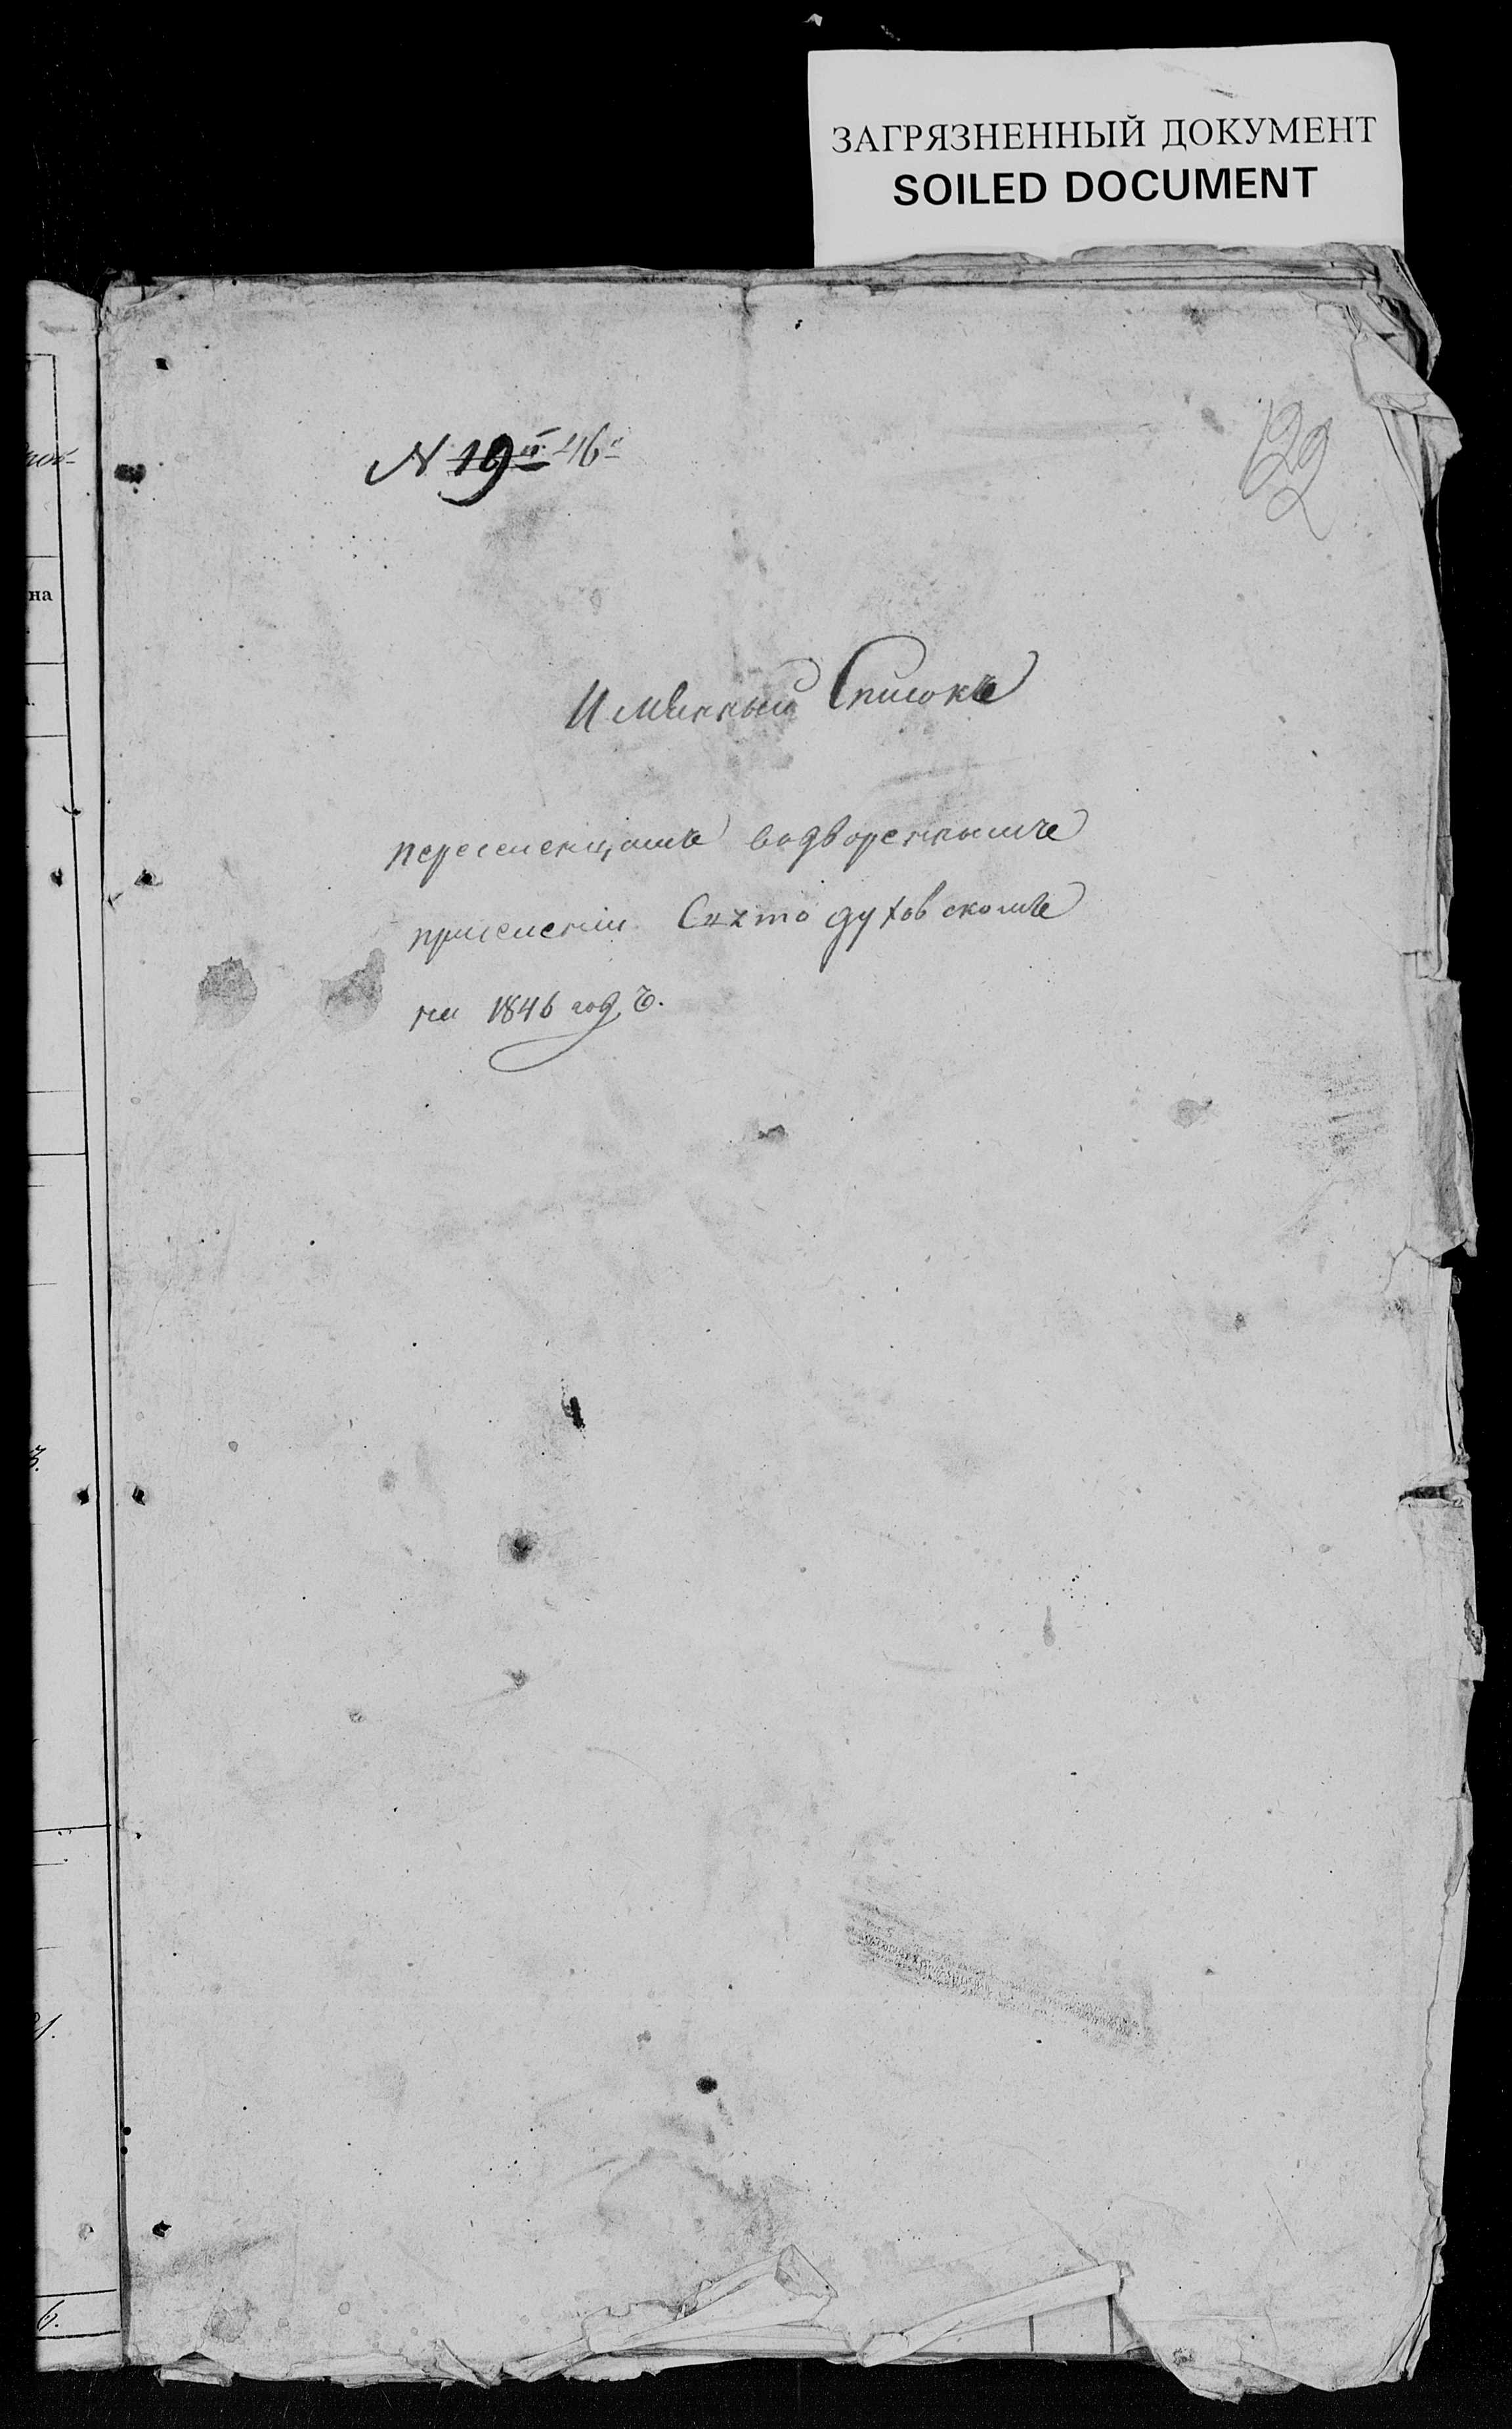 ЗАГРЯЗНЕННЫЙ ДОКУМЕНТ
SOILED DOCUMENT
N 19й 46й
122
Имянный Списокъ
переселенцамъ водвореннымъ
приселении Святодуховскомъ
на 1846 годъ.
на